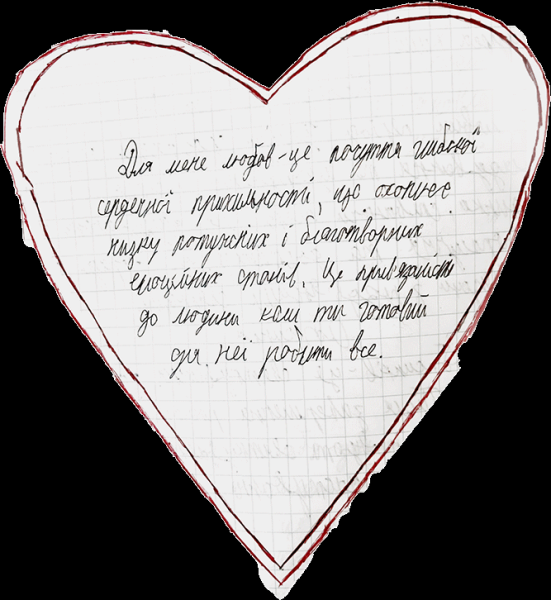 Для мене любов - це почуття глибокої
сердечної прихильності, що охоплює
низку потужних і благотворних
емоційних станів. Це прив'язаність
до людини коли ти готовий
для неї робити все.